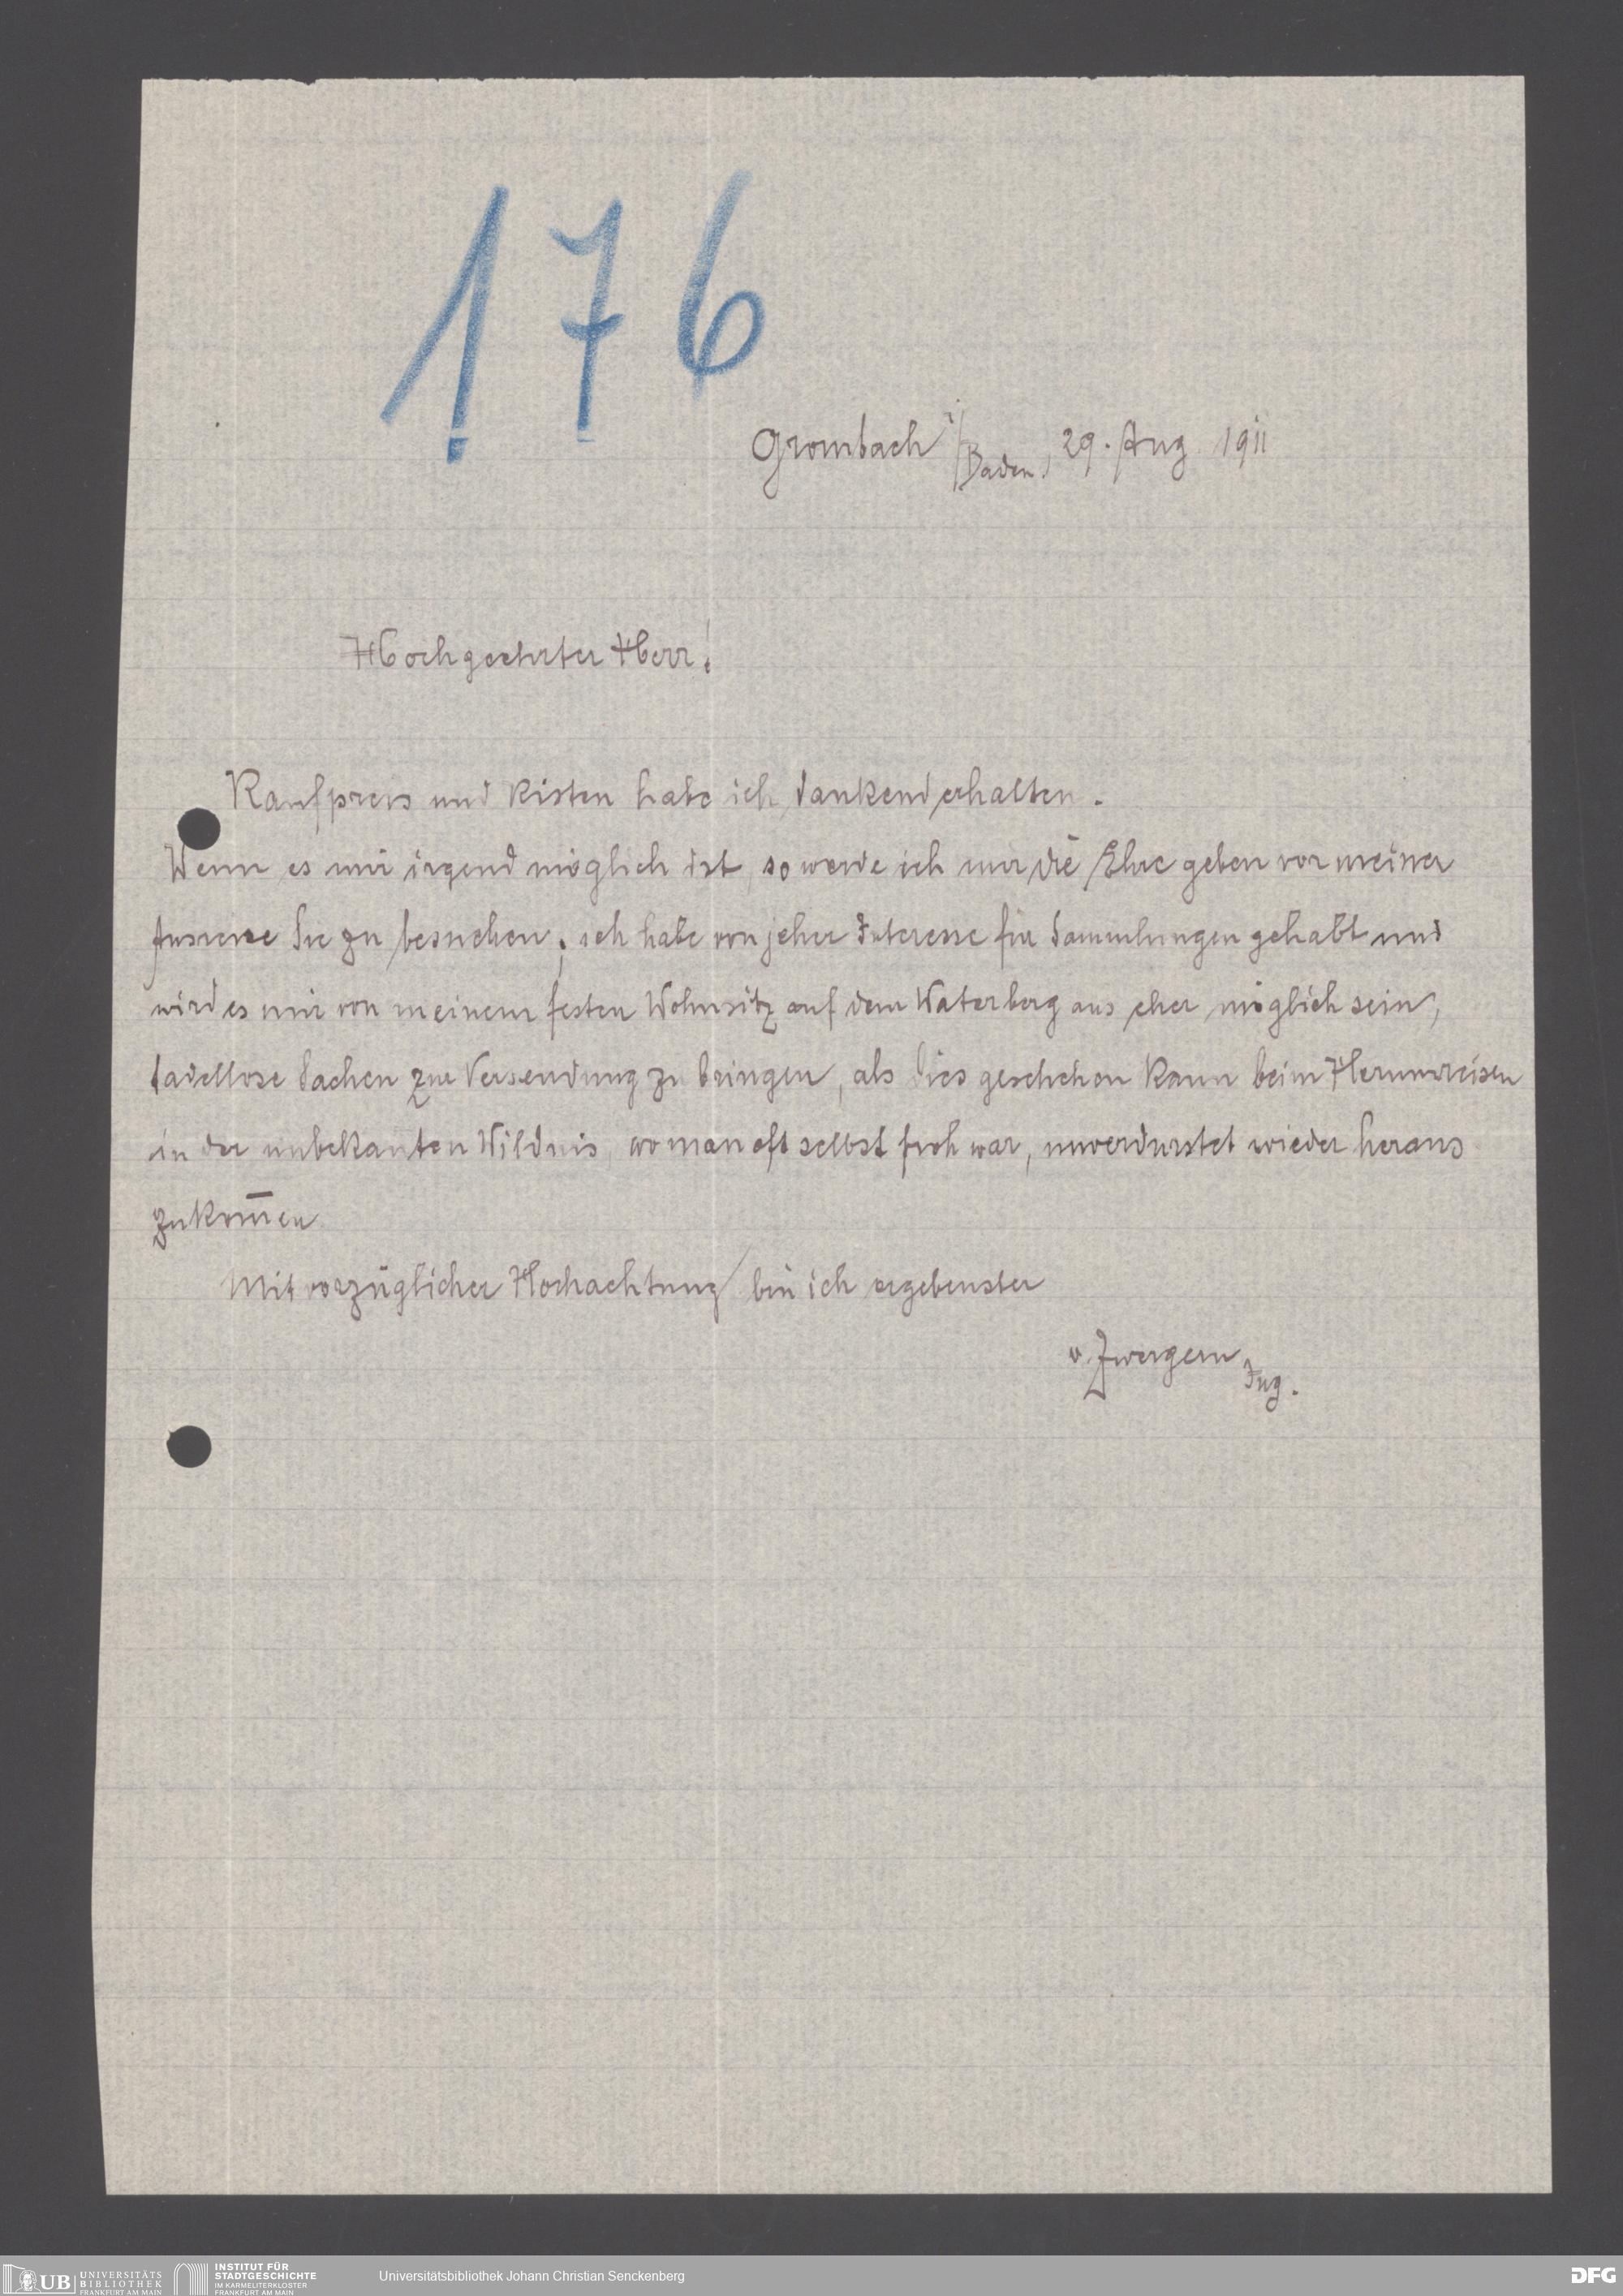 176
Grombach i/Baden, 29. Aug 1911
Hochgeehrter Herr!
Kaufpreis und Kisten habe ich dankend erhalten.
Wenn es mir irgend möglich ist, so werde ich mir die Ehre geben vor meiner
Ausreise Sie zu besuchen; ich habe von jeher Interesse für Sammlungen gehabt und
wird es mir von meinem festen Wohnsitz auf dem Waterberg aus eher möglich sein,
tadellose Sachen zur Versendung zu bringen, als dies geschehen kann beim Herumreisen
in der unbekanten Wildnis, wo man oft selbst froh war, unverdurstet wieder heraus
zukom̅en
Mit vorzüglicher Hochachtung bin ich ergebenster
v. Zwergern, Ing.
UB UNIVERSITÄTS BIBLIOTHEK FRANKFURT AM MAIN
INSTITUT FÜR STADTGESCHICHTE IM KARMELITERKLOSTER FRANKFURT AM MAIN
Universitätsbibliothek Johann Christian Senckenberg
DFG